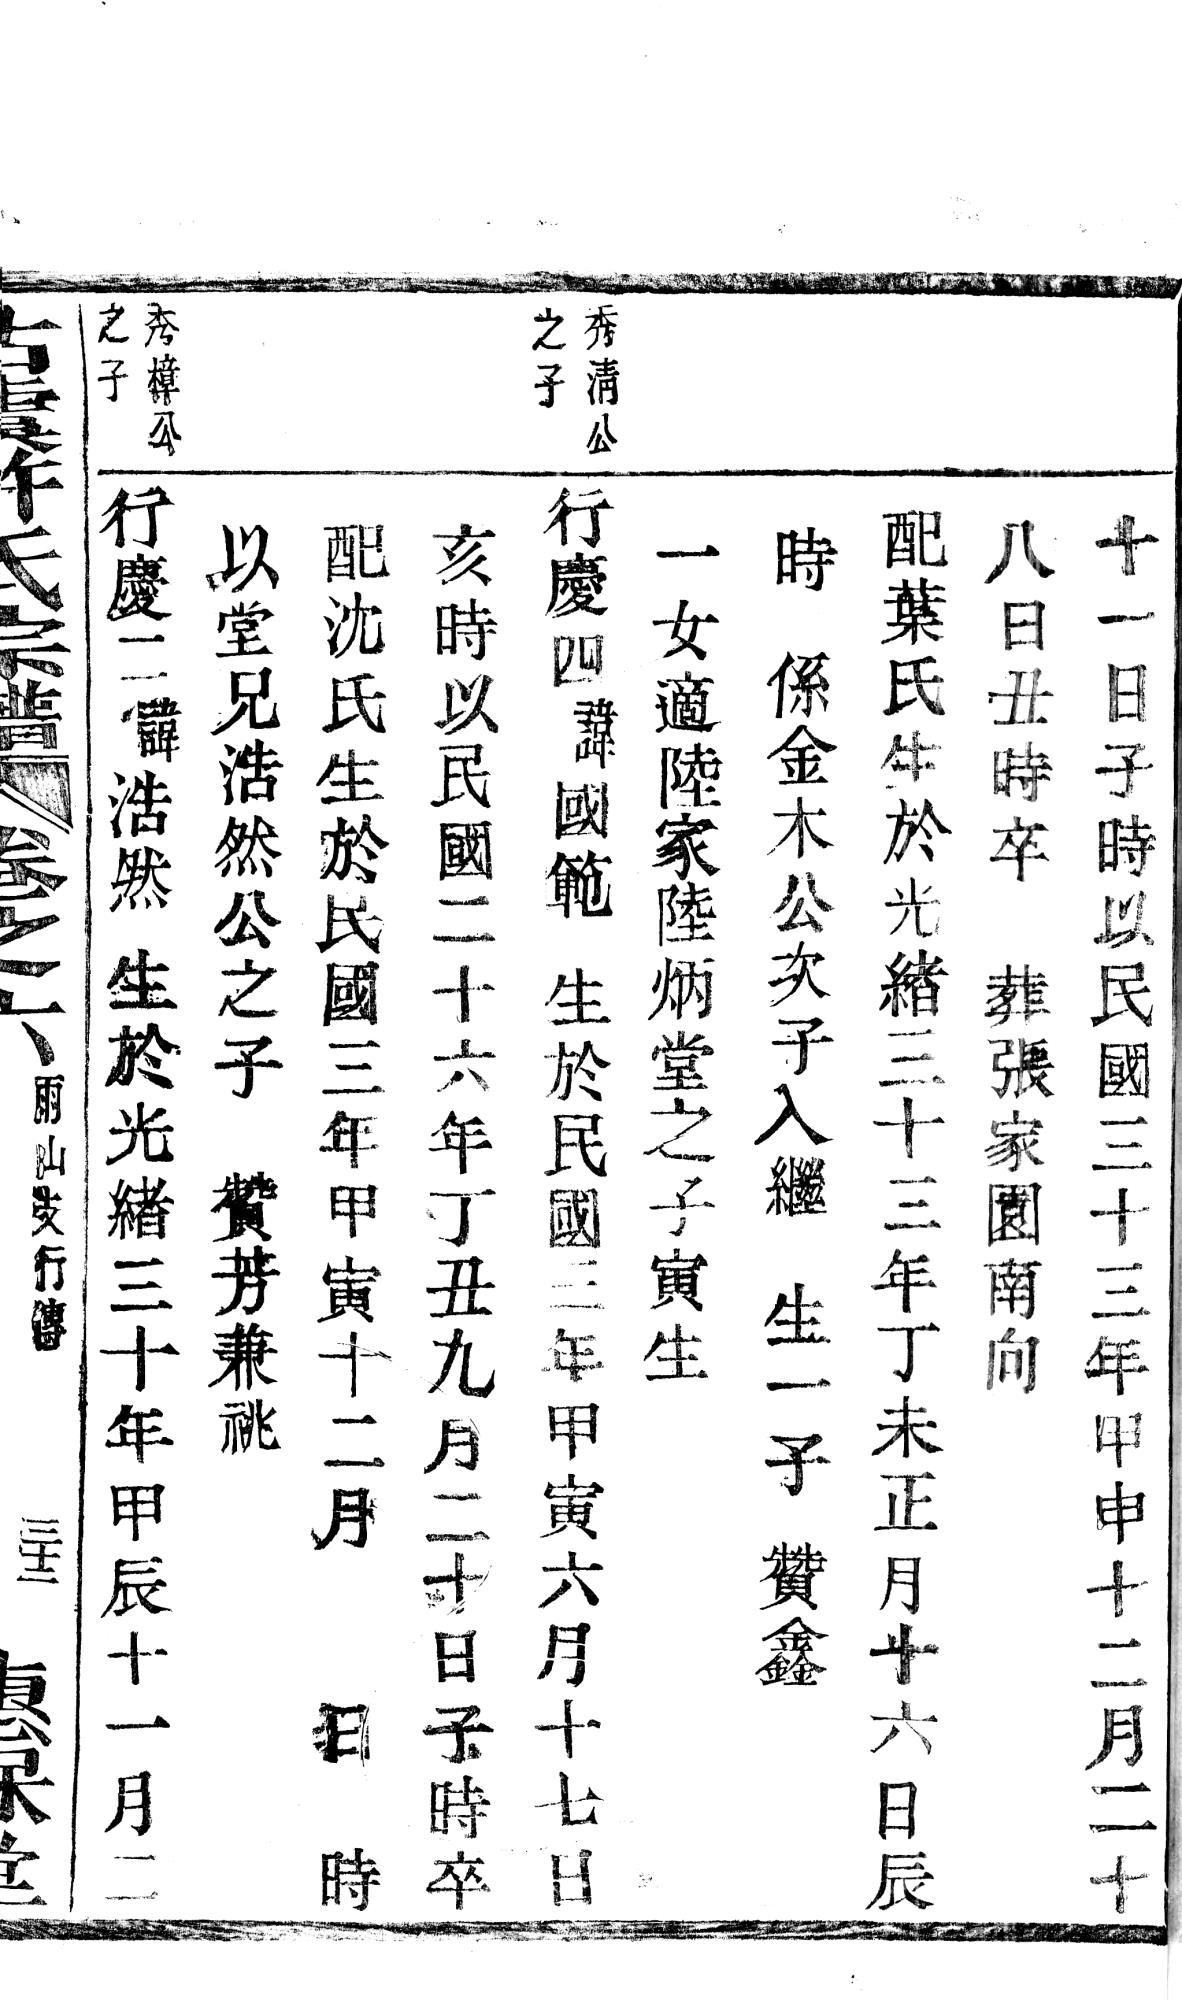 十一日子時以民國三十三年甲申十二月二十
八日丑時卒　葬張家園南向
配葉氏生於光緒三十三年丁未正月十六日辰
時　係金木公次子入繼　生一子　贊鑫
一女適陸家陸炳堂之子寅生
秀清公
之子
行慶四諱國範　生於民國三年甲寅六月十七日
亥時以民國二十六年丁丑九月二十日子時卒
配沈氏生於民國三年甲寅十二月　日　時
以堂兄浩然公之子　贊芳兼祧
秀樟公
之子
行慶二諱浩然　生於光緒三十年甲辰十一月二
古虞許氏宗譜
卷之六
雨山支行傳
三十三
惠保堂